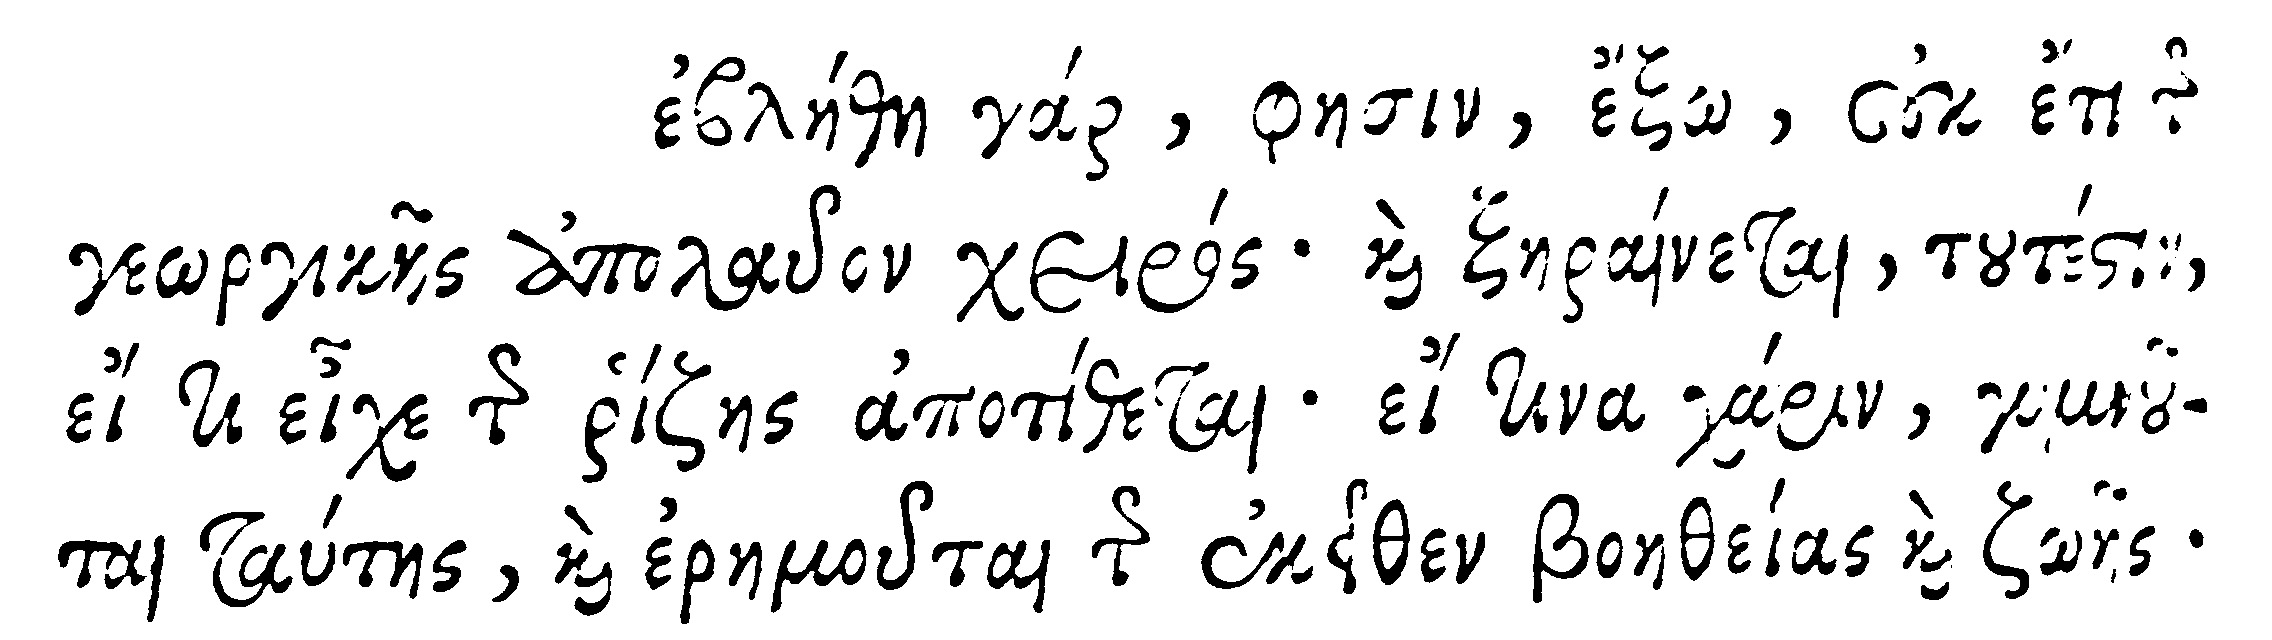 ἐβλήθη γάρ, φησιν, ἔξω, οὐκ ἔτι τῆς
γεωργικῆς ἀπολαῦον χειρός· καὶ ξηραίνεται, τουτέστιν,
εἴ τι εἶχε τῆς ῥίζης ἀποτίθεται· εἴ τινα χάριν, γυμνοῦ-
ται ταύτης, καὶ ἐρημοῦται τῆς ἐκεῖθεν βοηθείας καὶ ζωῆς·